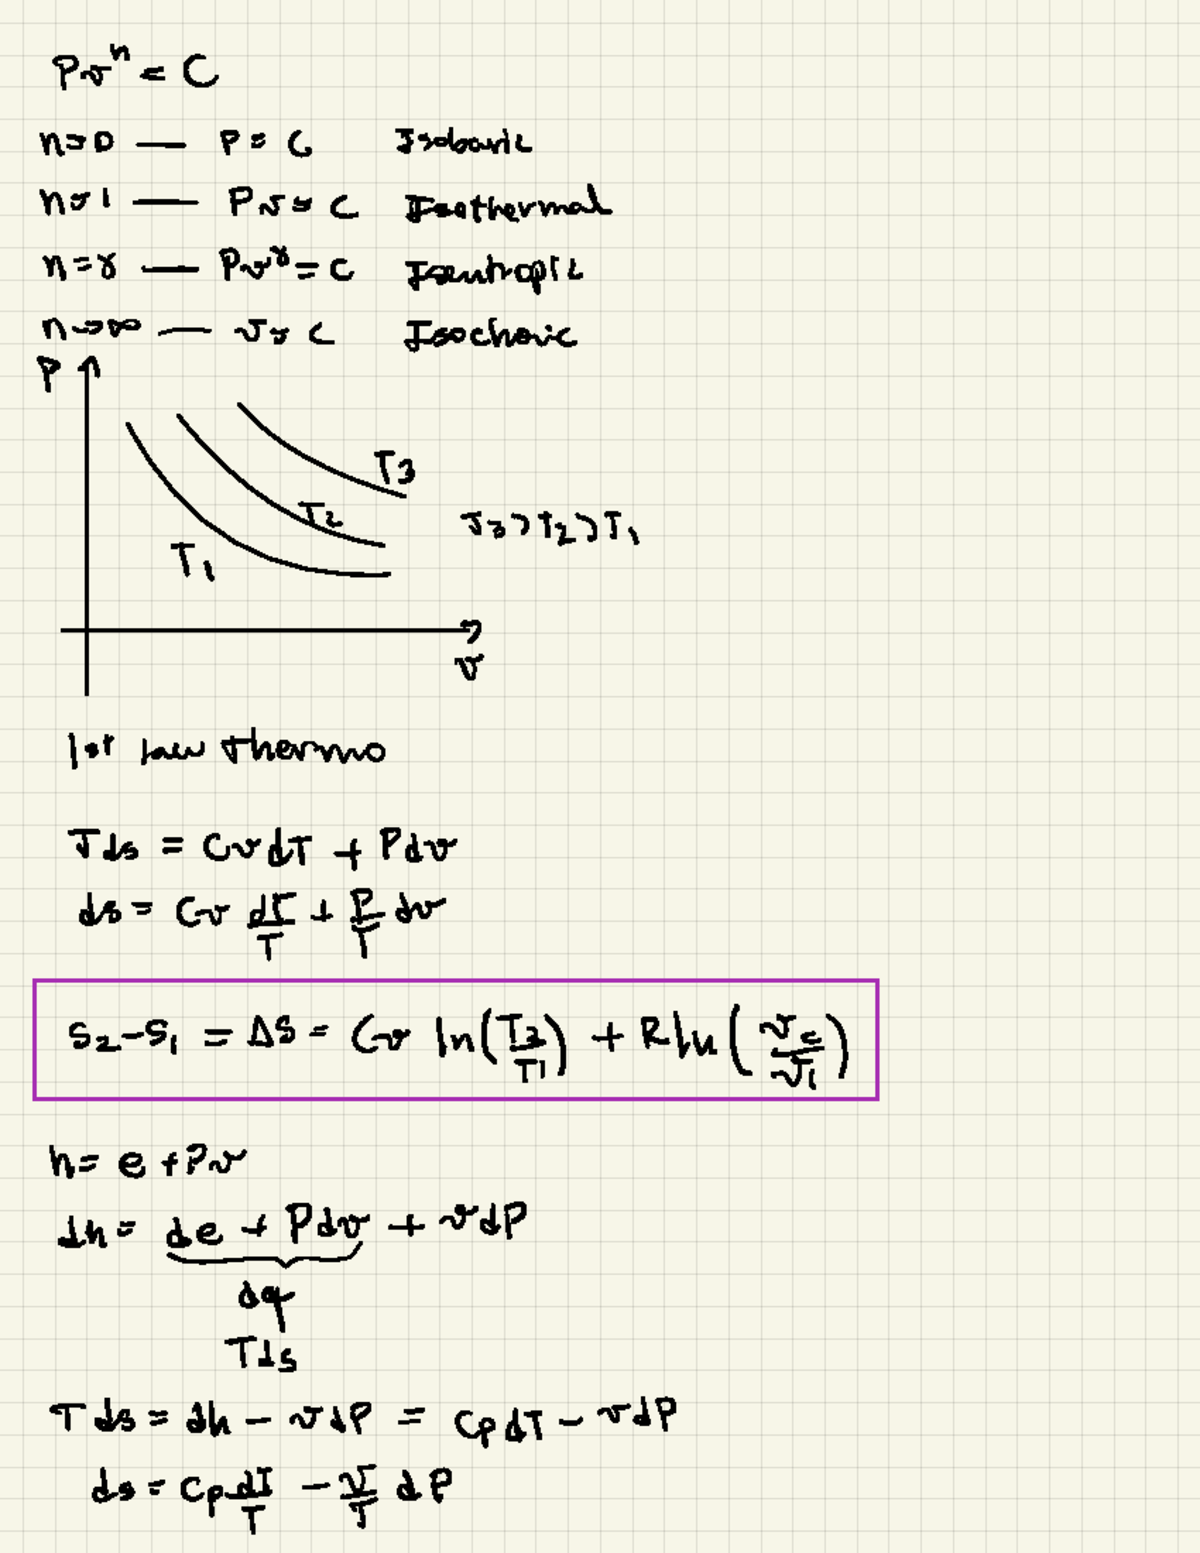 Pv^n = C
n=0 — P = C Isobaric
n=1 — Pv = C Isothermal
n=γ — Pv^γ = C Isentropic
n→∞ — v = C Isochoric
P
T3
T2
T3 > T2 > T1
T1
v
1st law thermo
Tds = Cv dT + Pdv
ds = Cv dT/T + P/T dv
S2-S1 = ΔS = Cv ln(T2/T1) + R ln(v2/v1)
h = e + Pv
dh = de + Pdv + vdP
dq
Tds
Tds = dh - vdP = Cp dT - vdP
ds = Cp dT/T - v/T dP